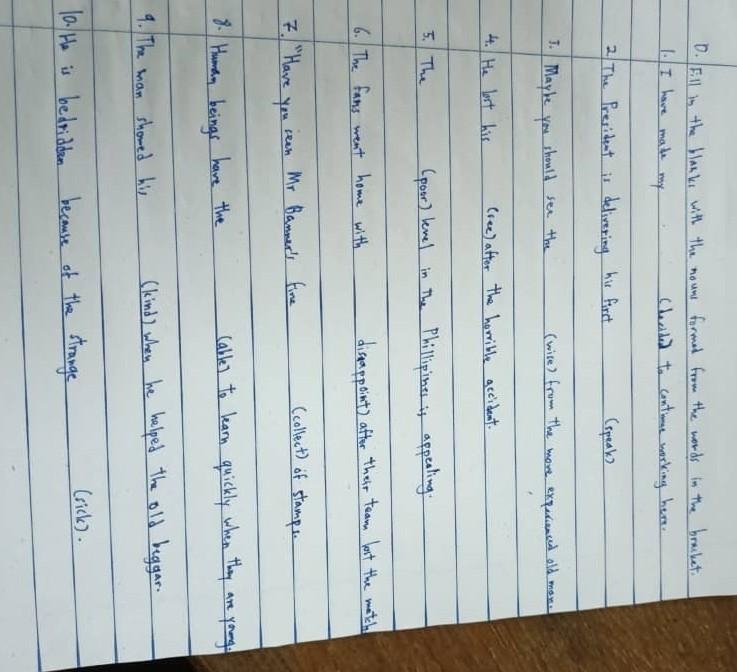 D. Fill in the blanks with the nouns formed from the words in the bracket.
1. I have made my (decided) to continue working here.
2. The President is delivering his first (speak)
3. Maybe you should see the (wise) from the more experienced old man.
4. He lost his (see) after the horrible accident.
5. The (poor) level in the Phillipines is appealing.
6. The fans went home with disappoint) after their team lost the match
7. "Have you seen Mr Banner's fine (collect) of stamps.
8. Human beings have the (able) to learn quickly when they are young.
9. The man showed his (kind) when he helped the old beggar.
10. He is bedridden because of the strange (sick).